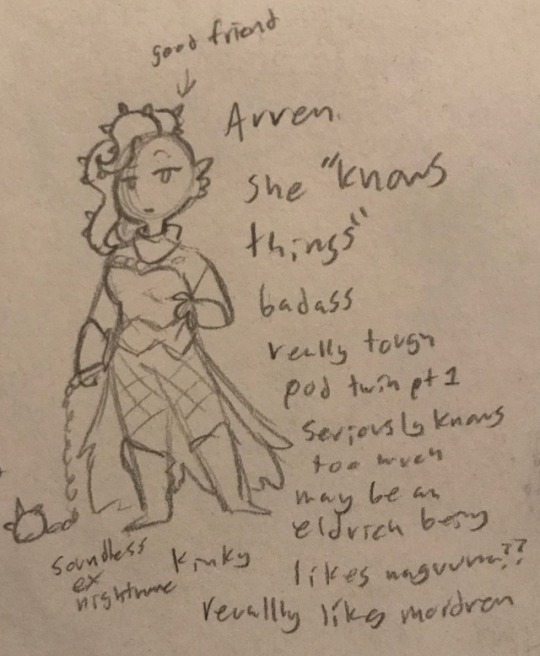 good friend
Arren.
she "knows
things"
badass
really tough
pod twin pt 1
seriously knows
too much
may be an
eldrich being
likes
soundless
ex
nightmare
kinky
revallly likes mordren